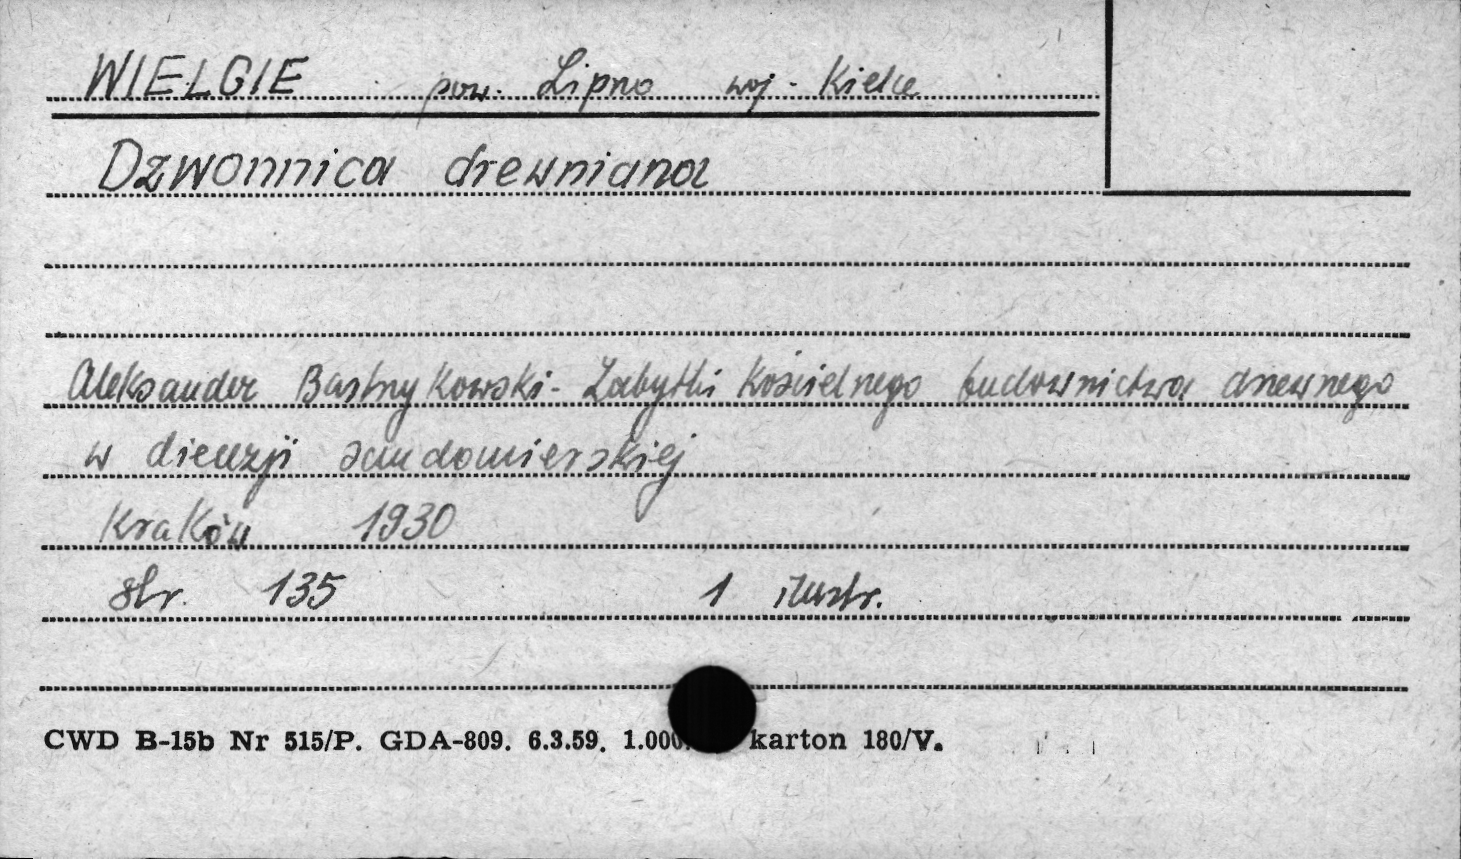 WIELGIE pow. Lipno woj. Kielce
Dzwonnica drewniana
Aleksander Bastrzykowski - Zabytki Kościelnego budownictwa drzewnego
w diecezji sandomierskiej
Kraków 1930
str. 135 1 ilustr.
CWD B-15b Nr 515/P. GDA-809. 6.3.59. 1.000. karton 180/V.